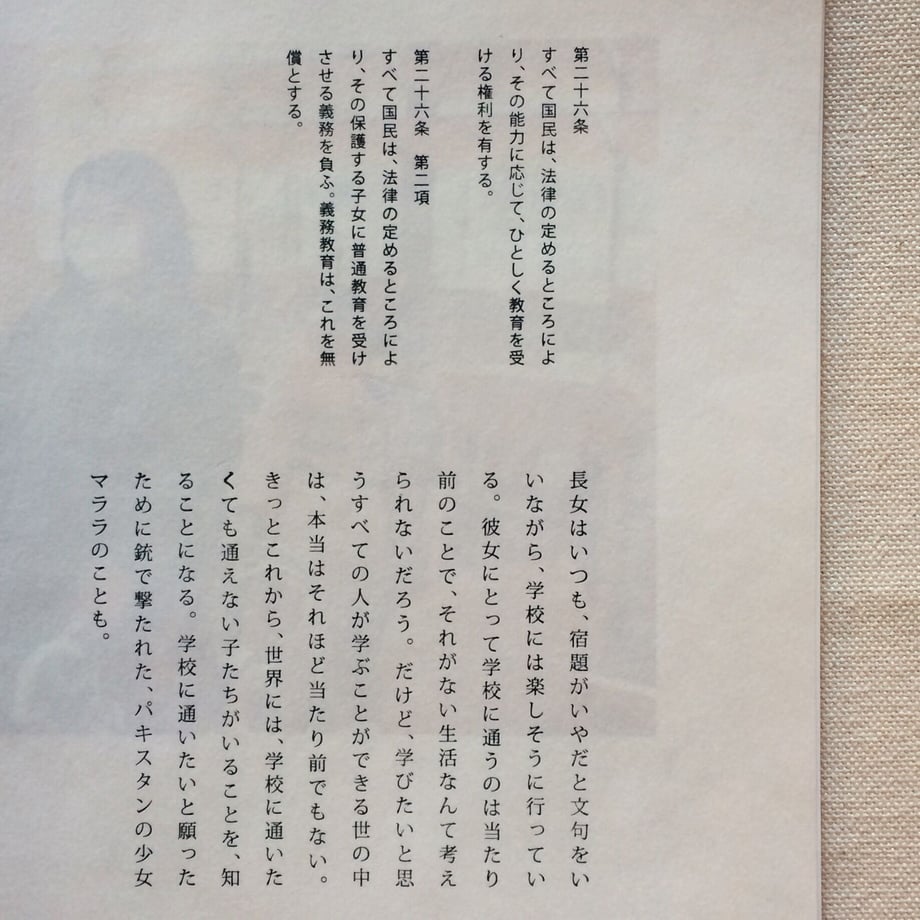 第二十六条
すべて国民は、法律の定めるところによ
り、その能力に応じて、ひとしく教育を受
ける権利を有する。
第二十六条　第二項
すべて国民は、法律の定めるところによ
り、その保護する子女に普通教育を受け
させる義務を負ふ。義務教育は、これを無
償とする。
長女はいつも、宿題がいやだと文句をい
いながら、学校には楽しそうに行ってい
る。彼女にとって学校に通うのは当たり
前のことで、それがない生活なんて考え
られないだろう。だけど、学びたいと思
うすべての人が学ぶことができる世の中
は、本当はそれほど当たり前でもない。
きっとこれから、世界には、学校に通いた
くても通えない子たちがいることを、知
ることになる。学校に通いたいと願った
ために銃で撃たれた、パキスタンの少女
マララのことも。